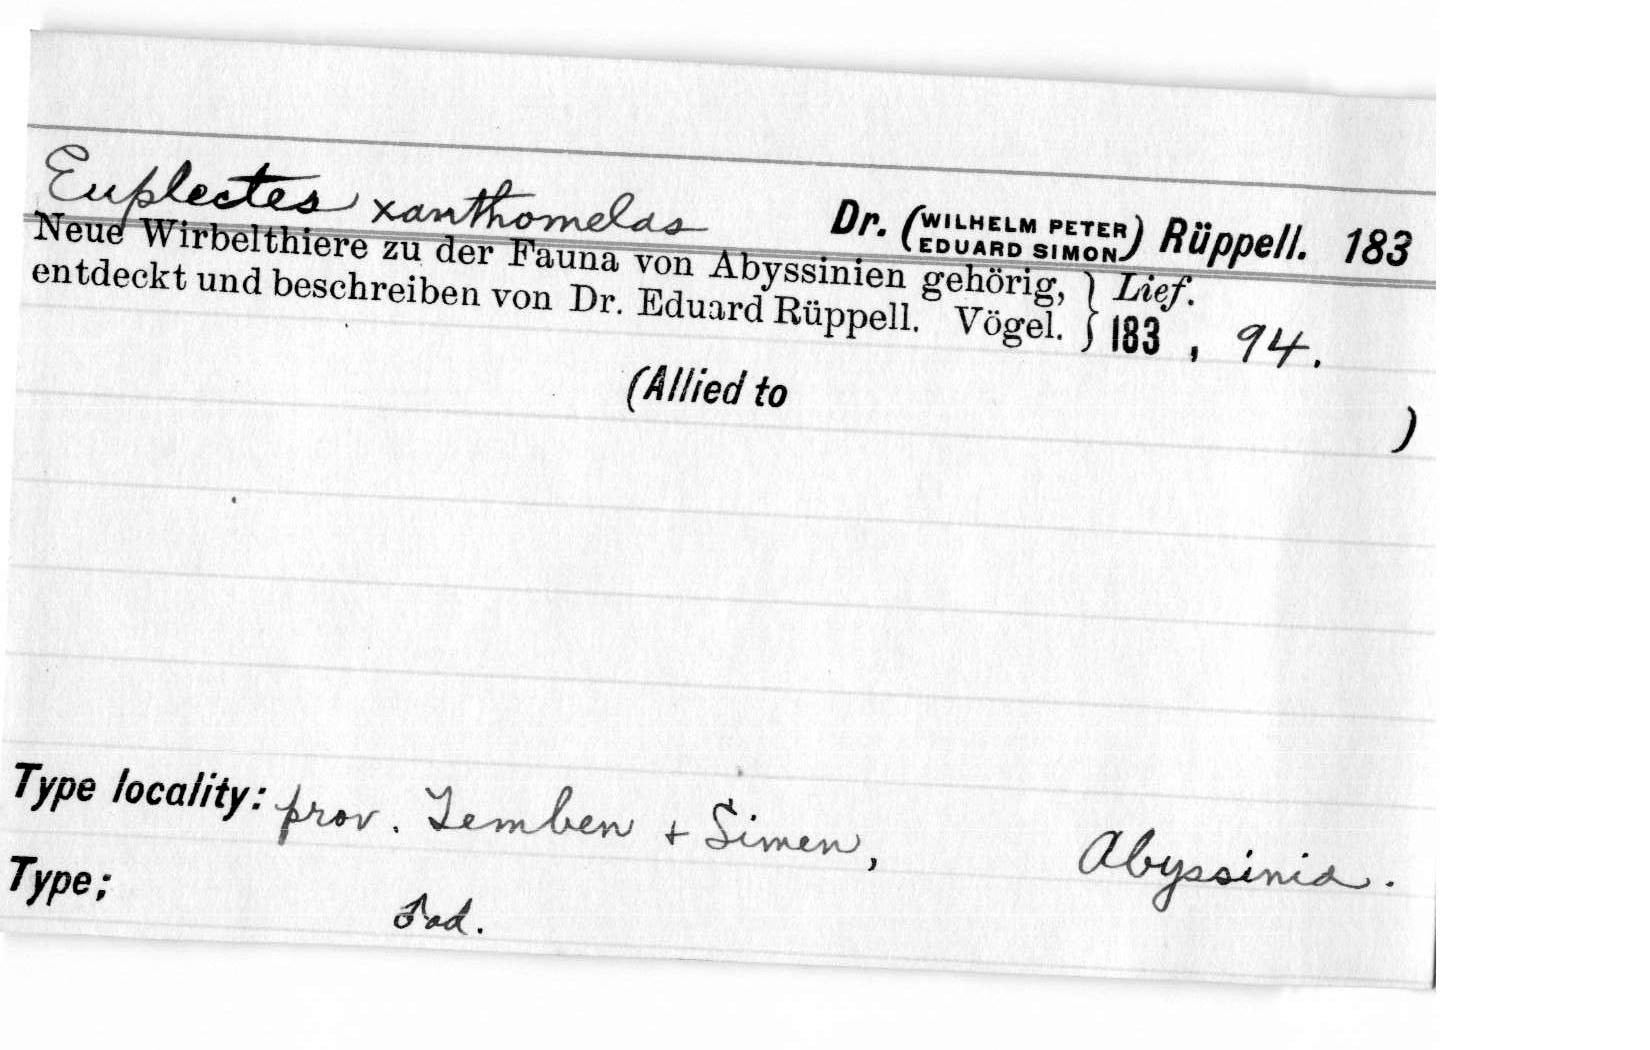 Euplectes xanthomelas Dr. (WILHELM PETER EDUARD SIMON) Rüppell. 183
Neue Wirbelthiere zu der Fauna von Abyssinien gehörig, } Lief.
entdeckt und beschreiben von Dr. Eduard Rüppell. Vögel. } 183 , 94.
(Allied to )
Type locality: prov. Temben + Simen, Abyssinia.
Type; ♂ ad.